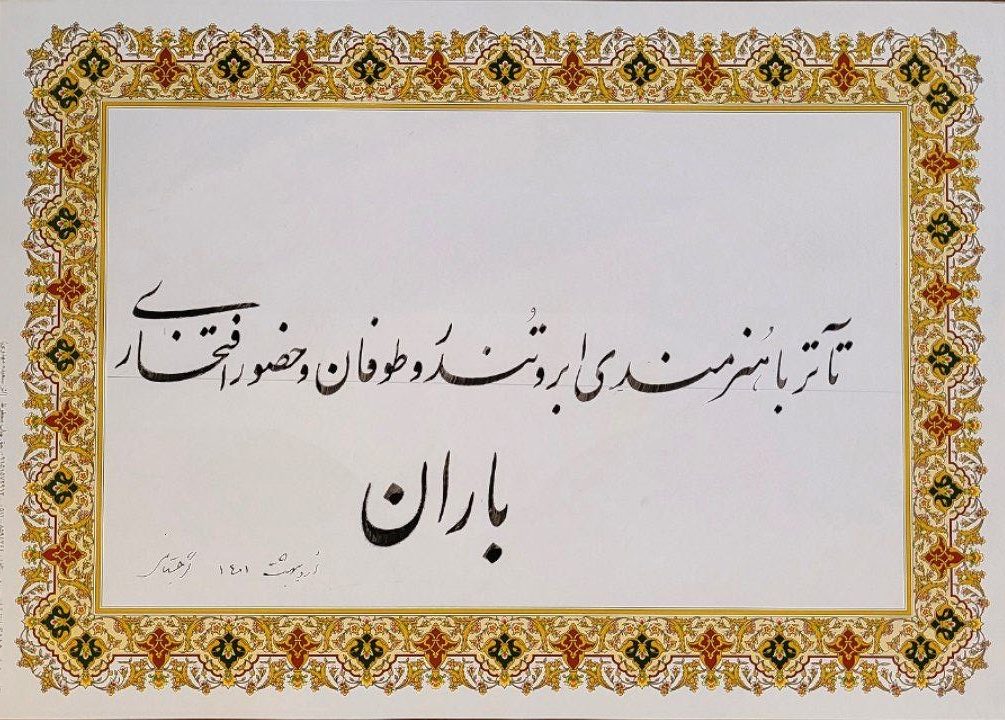 تآتر با هُنرمندی ابر و تُندَر و طوفان و حضور افتخاری
باران
اردیبهشت ۱۴۰۱